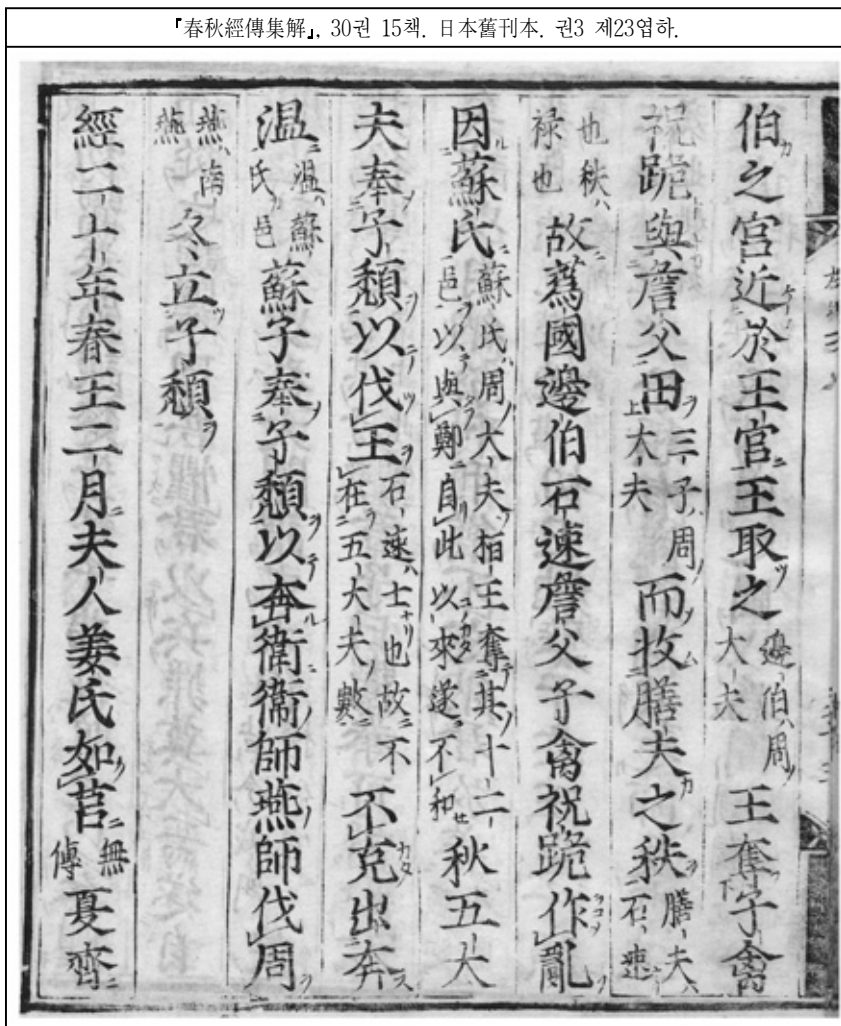 『春秋經傳集解』, 30권 15책. 日本舊刊本. 권3 제23엽하.
伯之宮近於王宮王取之邊伯周大夫王奪子禽
祝跪與詹父田三子周大夫而收膳夫之秩膳夫石速
也秩祿也故蒍國邊伯石速詹父子禽祝跪作亂
因蘇氏蘇氏周大夫桓王奪其十二邑以與鄭自此以來遂不和秋五大
夫奉子頹以伐王石速士也故不在五大夫數不克出奔
溫溫蘇氏邑蘇子奉子頹以奔衛衛師燕師伐周
燕南燕冬立子頹
經二十年春王二月夫人姜氏如莒無傳夏齊